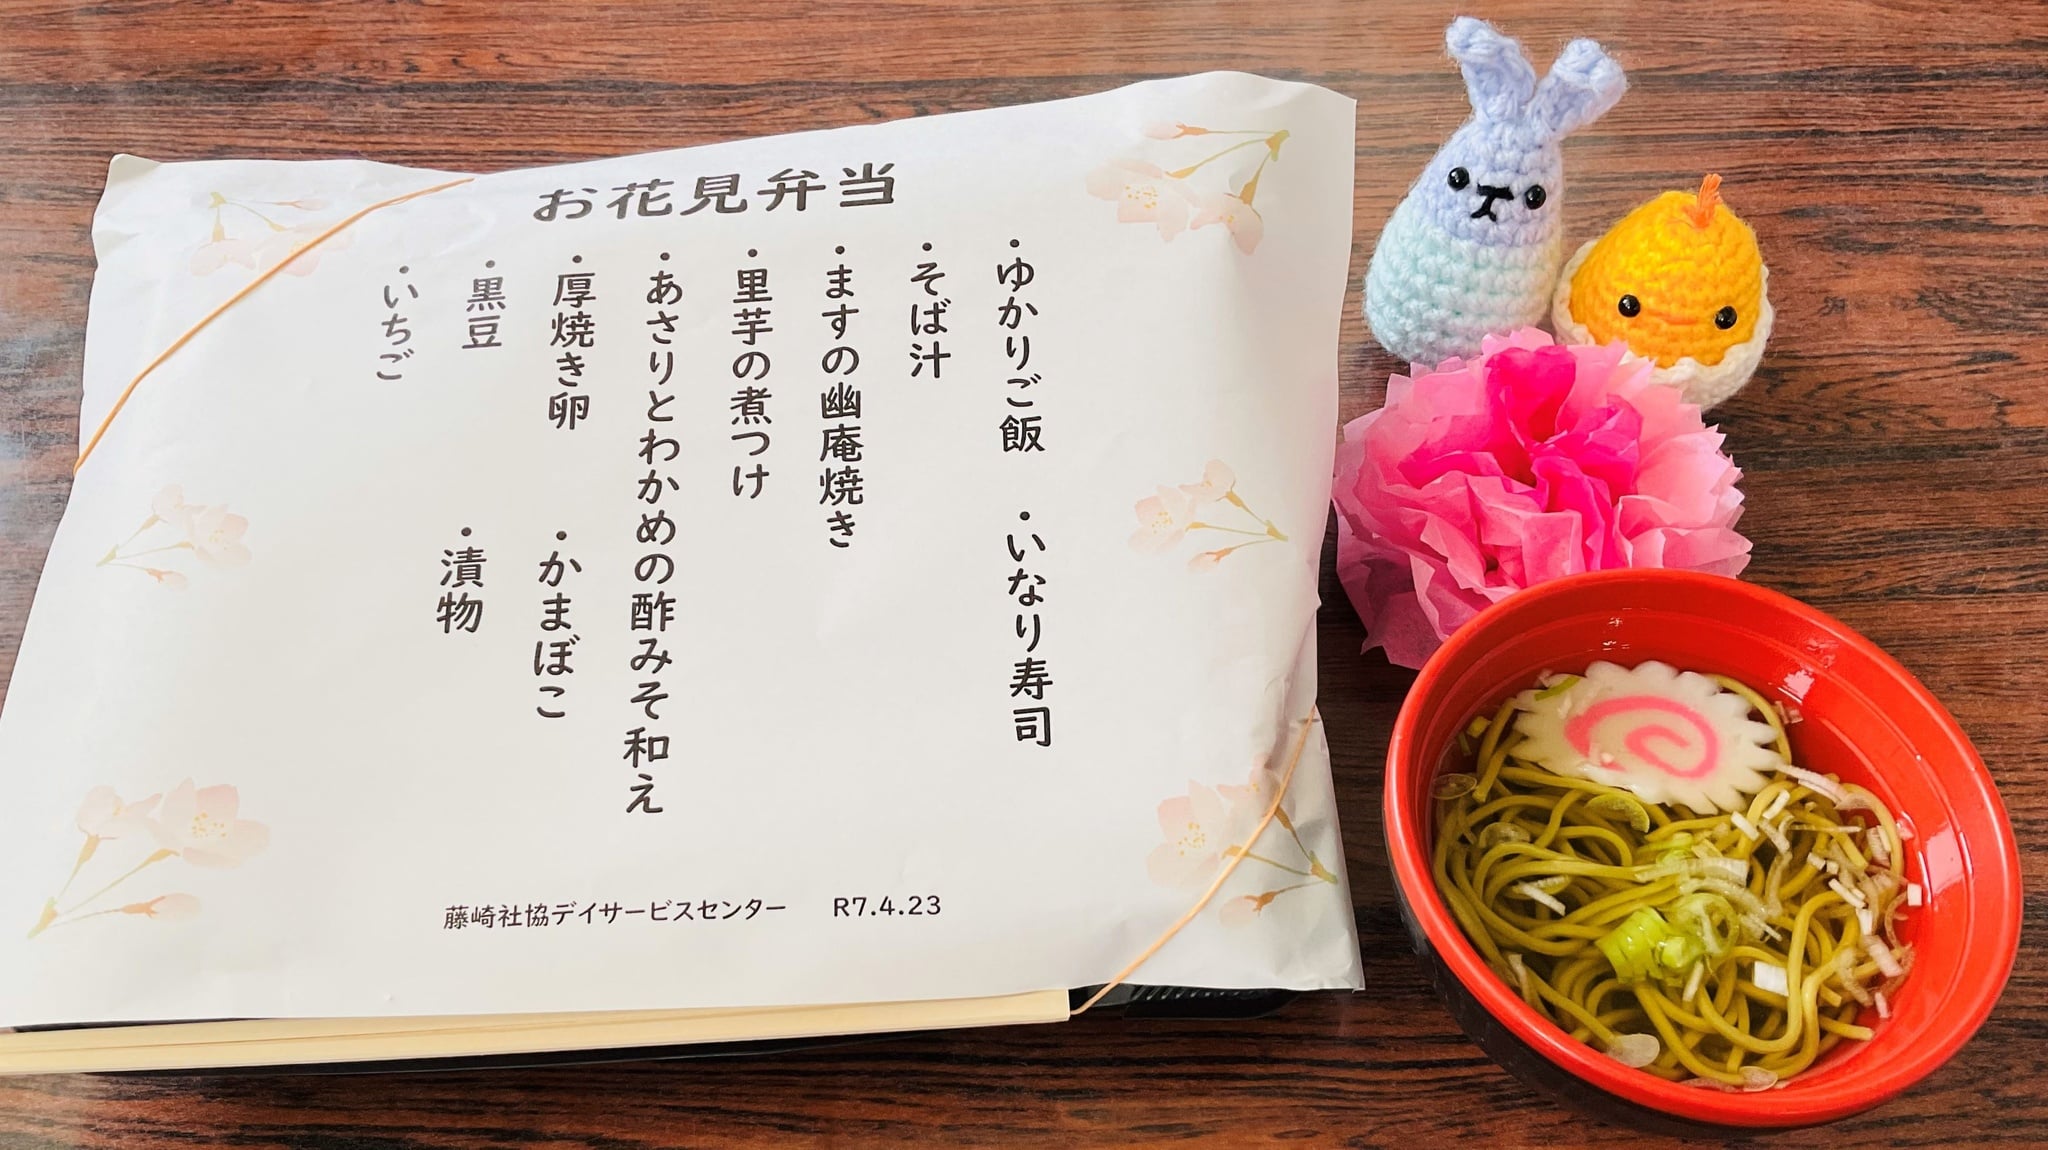 お花見弁当
・ゆかりご飯　・いなり寿司
・そば汁
・ますの幽庵焼き
・里芋の煮つけ
・あさりとわかめの酢みそ和え
・厚焼き卵　・かまぼこ
・黒豆　・漬物
・いちご
藤崎社協デイサービスセンター　R7.4.23